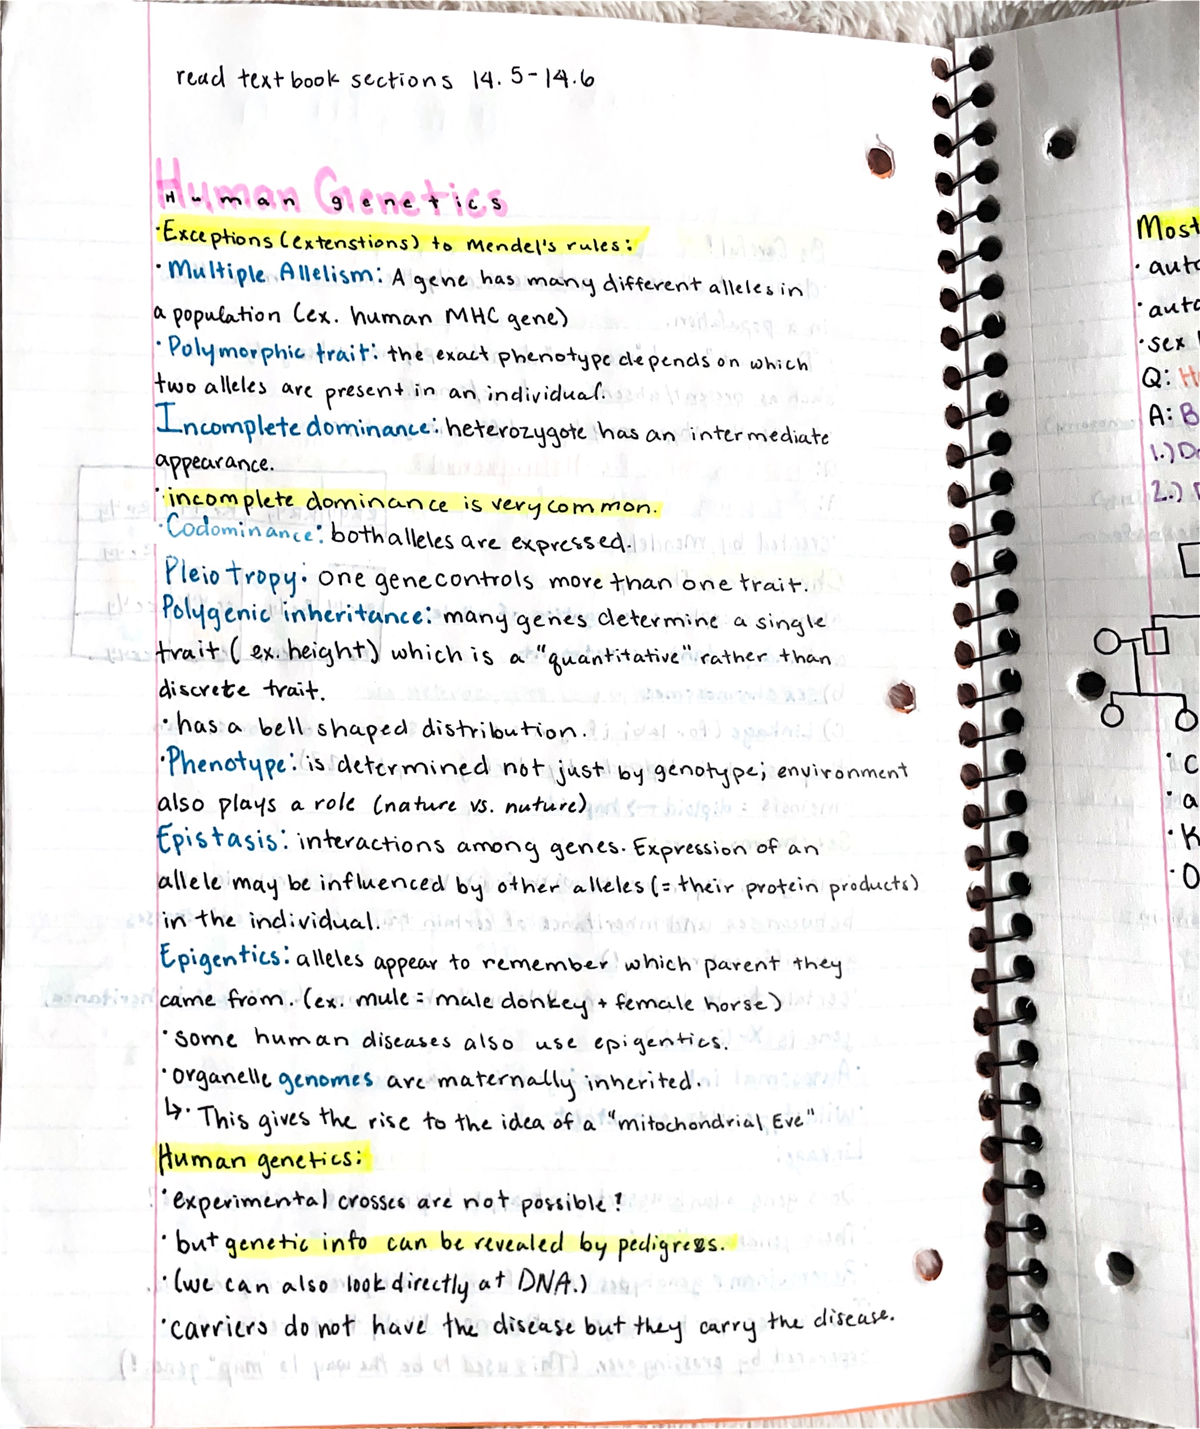 read textbook sections 14.5-14.6
Human Genetics
Human genetics
·Exceptions (extenstions) to Mendel's rules:
·Multiple Allelism: A gene has many different alleles in
a population (ex. human MHC gene)
·Polymorphic trait: the exact phenotype depends on which
two alleles are present in an individual.
Incomplete dominance: heterozygote has an intermediate
appearance.
·incomplete dominance is very common.
·Codominance: both alleles are expressed.
Pleiotropy: one gene controls more than one trait.
Polygenic inheritance: many genes determine a single
trait (ex. height) which is a "quantitative" rather than
discrete trait.
·has a bell shaped distribution.
·Phenotype: is determined not just by genotype; environment
also plays a role (nature vs. nuture)
Epistasis: interactions among genes. Expression of an
allele may be influenced by other alleles (= their protein products)
in the individual.
Epigentics: alleles appear to remember which parent they
came from. (ex. mule = male donkey + female horse)
·some human diseases also use epigentics.
·organelle genomes are maternally inherited.
↳· This gives the rise to the idea of a "mitochondrial Eve"
Human genetics:
·experimental crosses are not possible!
·but genetic info can be revealed by pedigress.
·(we can also look directly at DNA.)
·carriers do not have the disease but they carry the disease.
Most
·auto
·auto
·sex
Q: H
A: B
1.) Do
2.)
·C
·a
·K
·O